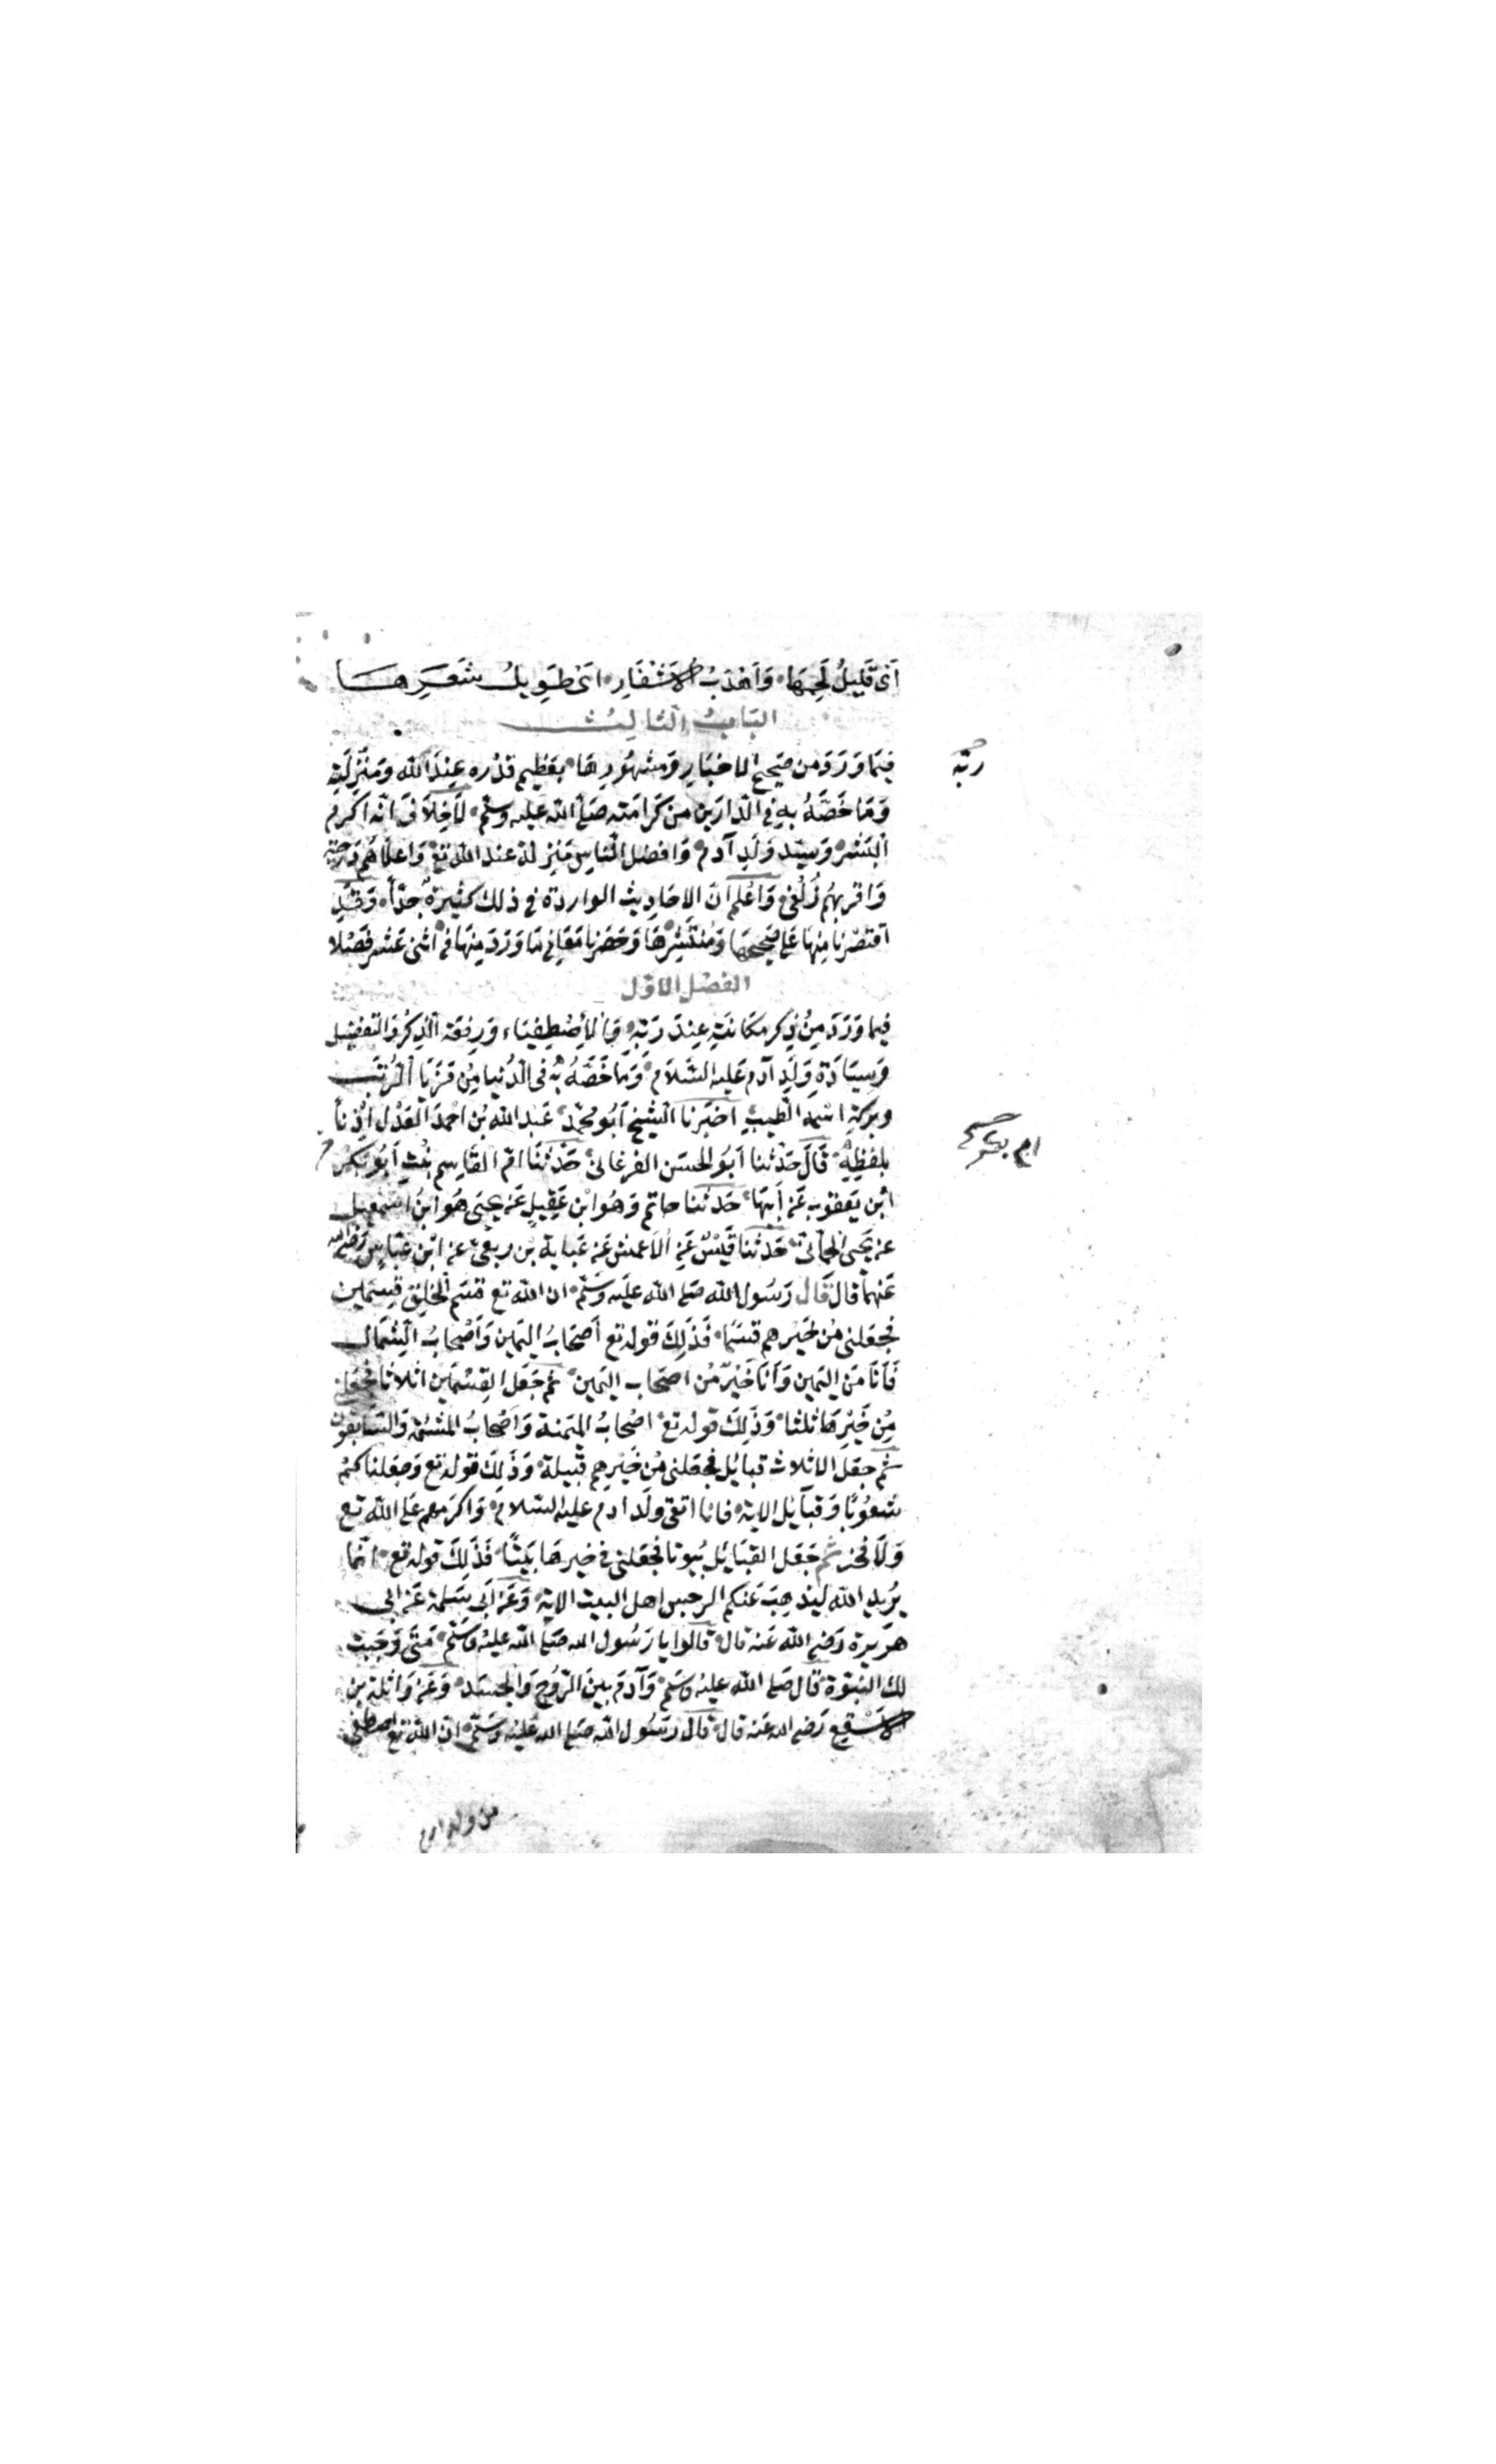 اَىْ قَلِيلُ لَحِمَهَا وَاَهْدَبُ الْاَشْفَارِ اَىْ طَوِيلُ شَعَرِهَا
البَابُ الثَّالِثُ
فِيَما وَرَدَ من صَحيحِ الاخبَارِ وَمشهُورِهَا بِعَظِيمِ قَدْرِه عِنْدَ الله وَمَنْزِلَتِهِ
وَمَا خَصَّهُ بِهِ فِى الدّارَين من كَرَامَته صَلَّى اللّه عَليه وسلّم لَا خِلَافَ اَنّه اَكرَم
البَشَر وَسَيّد وَلَدِ آدم وَافضل النّاس مَنْزلة عند اللّه تع وَاعلَاهُم دَرَجَة
وَاقربهُم زُلْفى وَاعْلم اَنّ الاحَاديث الواردة فى ذلك كثيرة جدّاً وَقَدِ
اقتصَرْنَا مِنهَا عَلى صَحيحِهَا وَمُنتَشِرِهَا وَحَصَرنا مَعَانِى مَا وَرَدَ مِنهَا فى اثنى عَشر فَصْلا
الفَصْل الاوّل
فيما وَرَدَ مِنْ ذِكر مَكَانتهِ عِندَ رَبّه وَالْاِصْطِفَاء وَرِفعَة الذّكر وَالتفضيل
وَسِيَادَةِ وَلَدِ آدم عَليه السّلَام وَمَا خَصَّهُ بِه فى الدُنيا مِنْ مَزَايَا الرُتَب
وبَركَةِ اسْمه الطّيبِ اخبَرنا الشّيخ اَبُو محَمّد عَبد الله بْن احمَد العَدْل اِذْناً
بلفظِهِ قَالَ حَدّثنا اَبُو الحسَن الفرغانىّ حَدّثتنا امّ القَاسِم بنْت اَبُو بَكر
ابْن يَعقوب عَن اَبيهَا حَدثنا حاتم وَهُو ابْن عَقِيلٍ عَن يحيى هُو ابنُ اسمعيل
عن يَحيى الحمّانىّ حَدثنا قَيْسٌ عَنِ الاعمش عَن عَبايَة بْن ربعىّ عن ابْن عَبّاسٍ رَضىَ الله
عَنهمَا قال قال رَسُول الله صَلى الله عَليه وسلّم ان الله تع قسَم الخَلق قِسمَين
فجعَلنى مِنْ خَيْرهم قسمًا فَذلِكَ قوله تع اَصحَابُ اليَمين وَاَصْحابُ الشّمال
فَاَنَا مَن اليَمين وَاَنَا خَيْر مْن اصحَاب اليَمين ثم جَعَل القِسْمَين اثلاثا فجعَلنى
مِن خَيْرِهَا ثلثا وَذلِكَ قوله تع اصْحابُ الميَمنة وَاَصْحابُ المشئمة وَالسّابقون
ثم جعَل الاثلاث قبائل فجعَلنى مْن خَيْرهم قَبيلة وَذَلِكَ قوله تع وَجعَلناكمْ
شُعوُبًا وَقبَآئل الاية فانا اتقى ولَد ادم عليه السّلام وَاكرَمهم عَلى الله تع
وَلَا فخر ثم جَعَل القَبَائل بُيوتا فجعَلنى فى خيرهَا بَيْتًا فَذَلِكَ قوله تع انّما
يُريد الله ليُذهِبَ عَنكم الرجس اهل البيت الاية وَعَن اَبى سَلمة عَن ابى
هرَيرة رَضى الله عَنه قال قالوا يا رَسُول الله صَلى اللّه عليه وَسَلّم مَتى وَجَبت
لك النبوّة قَال صَلى الله عليه وَسَلم وَآدَم بينَ الرّوُح وَالجسَد وَعَن وَاثلة بن
الاَسْقع رَضى الله عَنه قال قال رَسُول الله صَلى الله عَليه وَسَلم ان الله تع اصطفى
من ولد ابر
ربّه